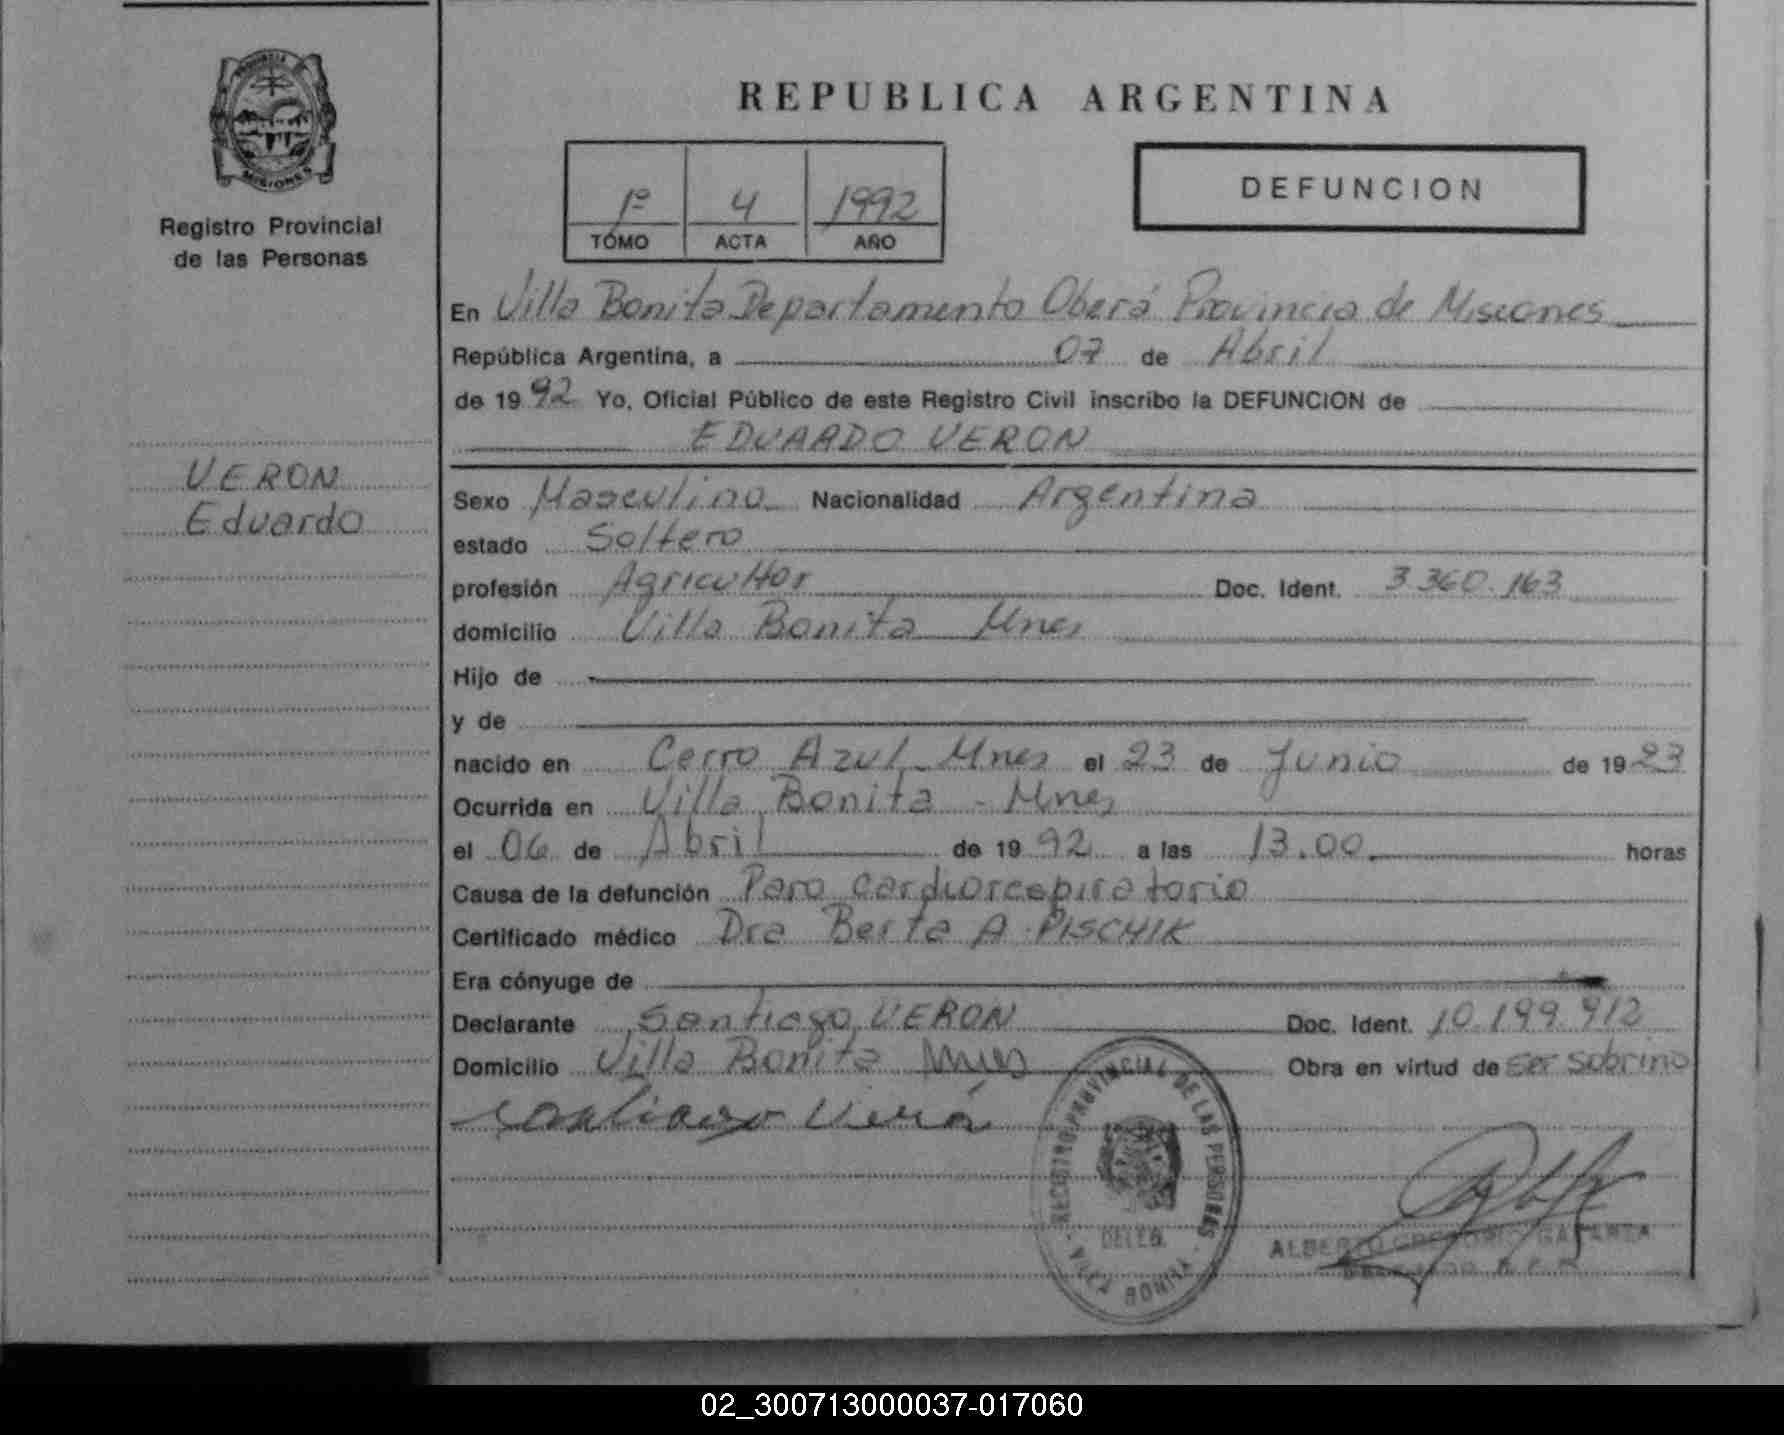 PROVINCIA
MISIONES
Registro Provincial
de las Personas
VERON
Eduardo
REPUBLICA ARGENTINA
1º 4 1992
TOMO ACTA AÑO
DEFUNCION
En Villa Bonita Departamento Oberá Provincia de Misiones
República Argentina, a 07 de Abril
de 1992 Yo, Oficial Público de este Registro Civil inscribo la DEFUNCION de
EDUARDO VERON
Sexo Masculino Nacionalidad Argentina
estado Soltero
profesión Agricultor Doc. Ident. 3.360.163
domicilio Villa Bonita Mnes
Hijo de
y de
nacido en Cerro Azul Mnes el 23 de Junio de 1923
Ocurrida en Villa Bonita - Mnes
el 06 de Abril de 1992 a las 13.00 horas
Causa de la defunción Paro cardiorespiratorio
Certificado médico Dra Berta A. PISCHIK
Era cónyuge de
Declarante Santiago VERON Doc. Ident. 10.199.912
Domicilio Villa Bonita Mnes Obra en virtud de ser sobrino
Santiago Verón
REGISTRO PROVINCIAL DE LAS PERSONAS
DELEG.
VILLA BONITA
ALBERTO GREGORIO
02_300713000037-017060